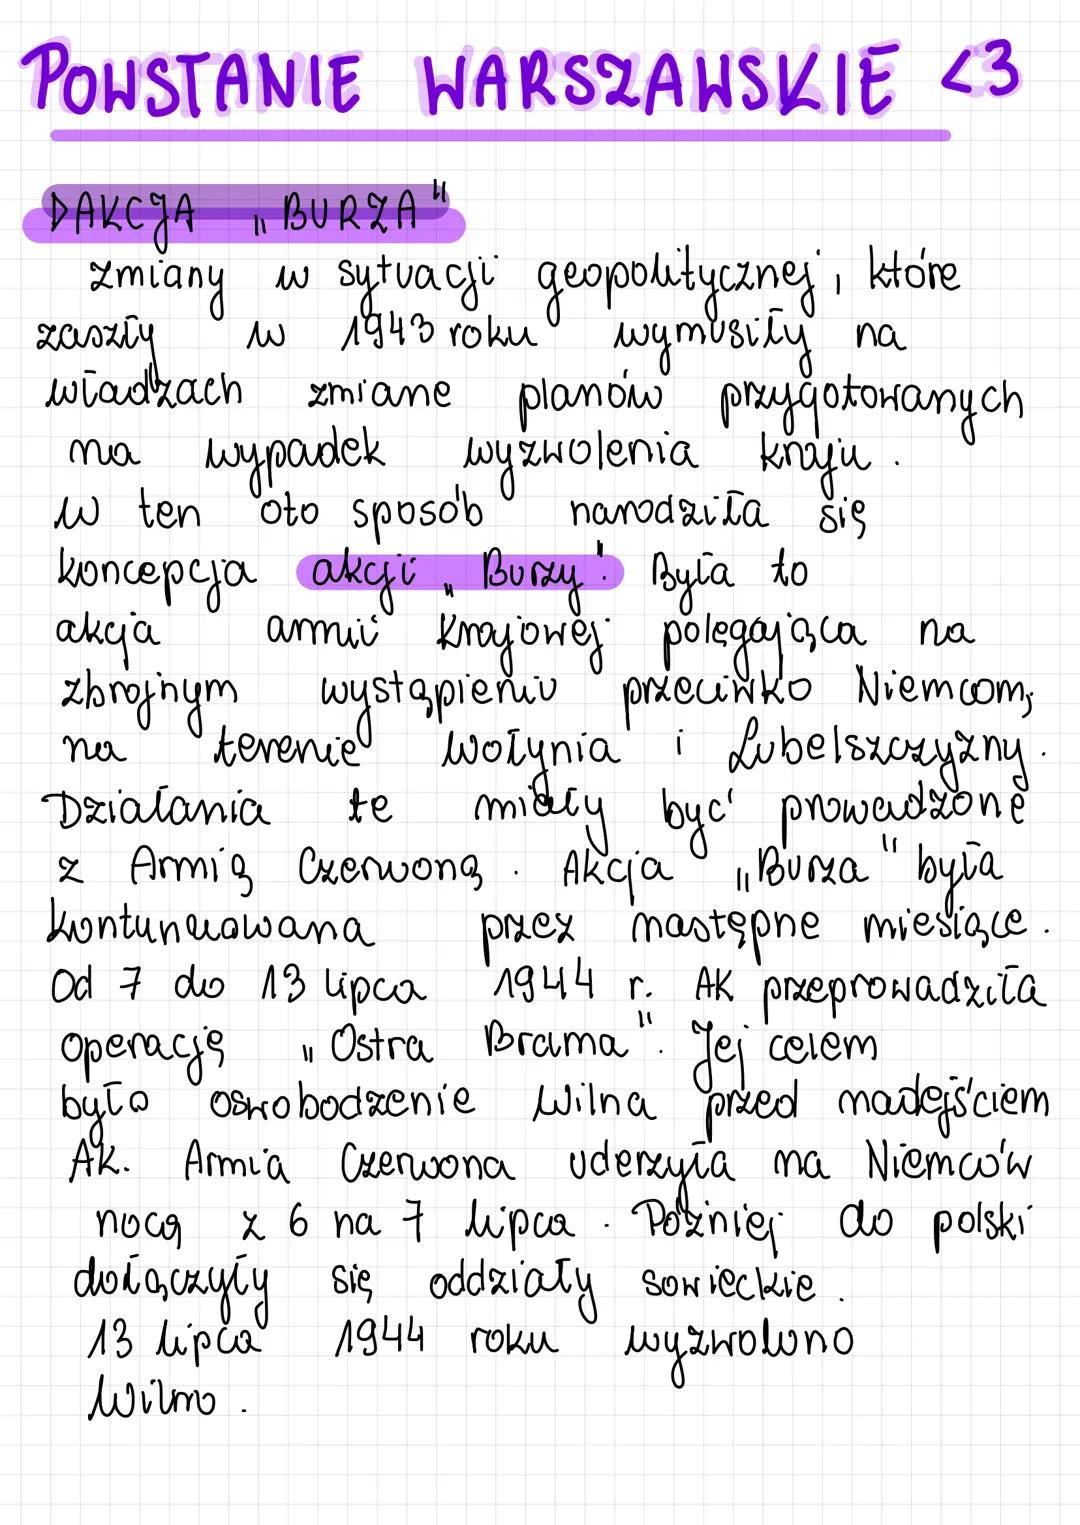 POWSTANIE WARSZAWSKIE <3
DAKCJA „BURZA"
zmiany w sytuacji geopolitycznej, które
zaszły w 1943 roku wymusiły na
władzach zmiane planów przygotowanych
na wypadek wyzwolenia kraju.
W ten oto sposób narodziła się
koncepcja akcji „Burzy". Była to
akcja armii Krajowej polegająca na
zbrojnym wystąpieniu przeciwko Niemcom,
na terenie Wołynia i Lubelszczyzny.
Działania te miały być prowadzone
z Armią Czerwoną. Akcja „Burza" była
kontunuowana przez następne miesiące.
Od 7 do 13 lipca 1944 r. AK przeprowadziła
operację „Ostra Brama". Jej celem
było oswobodzenie Wilna przed nadejściem
AK. Armia Czerwona uderzyła na Niemców
nocą z 6 na 7 lipca. Później do polski
dołączyły się oddziały sowieckie.
13 lipca 1944 roku wyzwolono
Wilno.